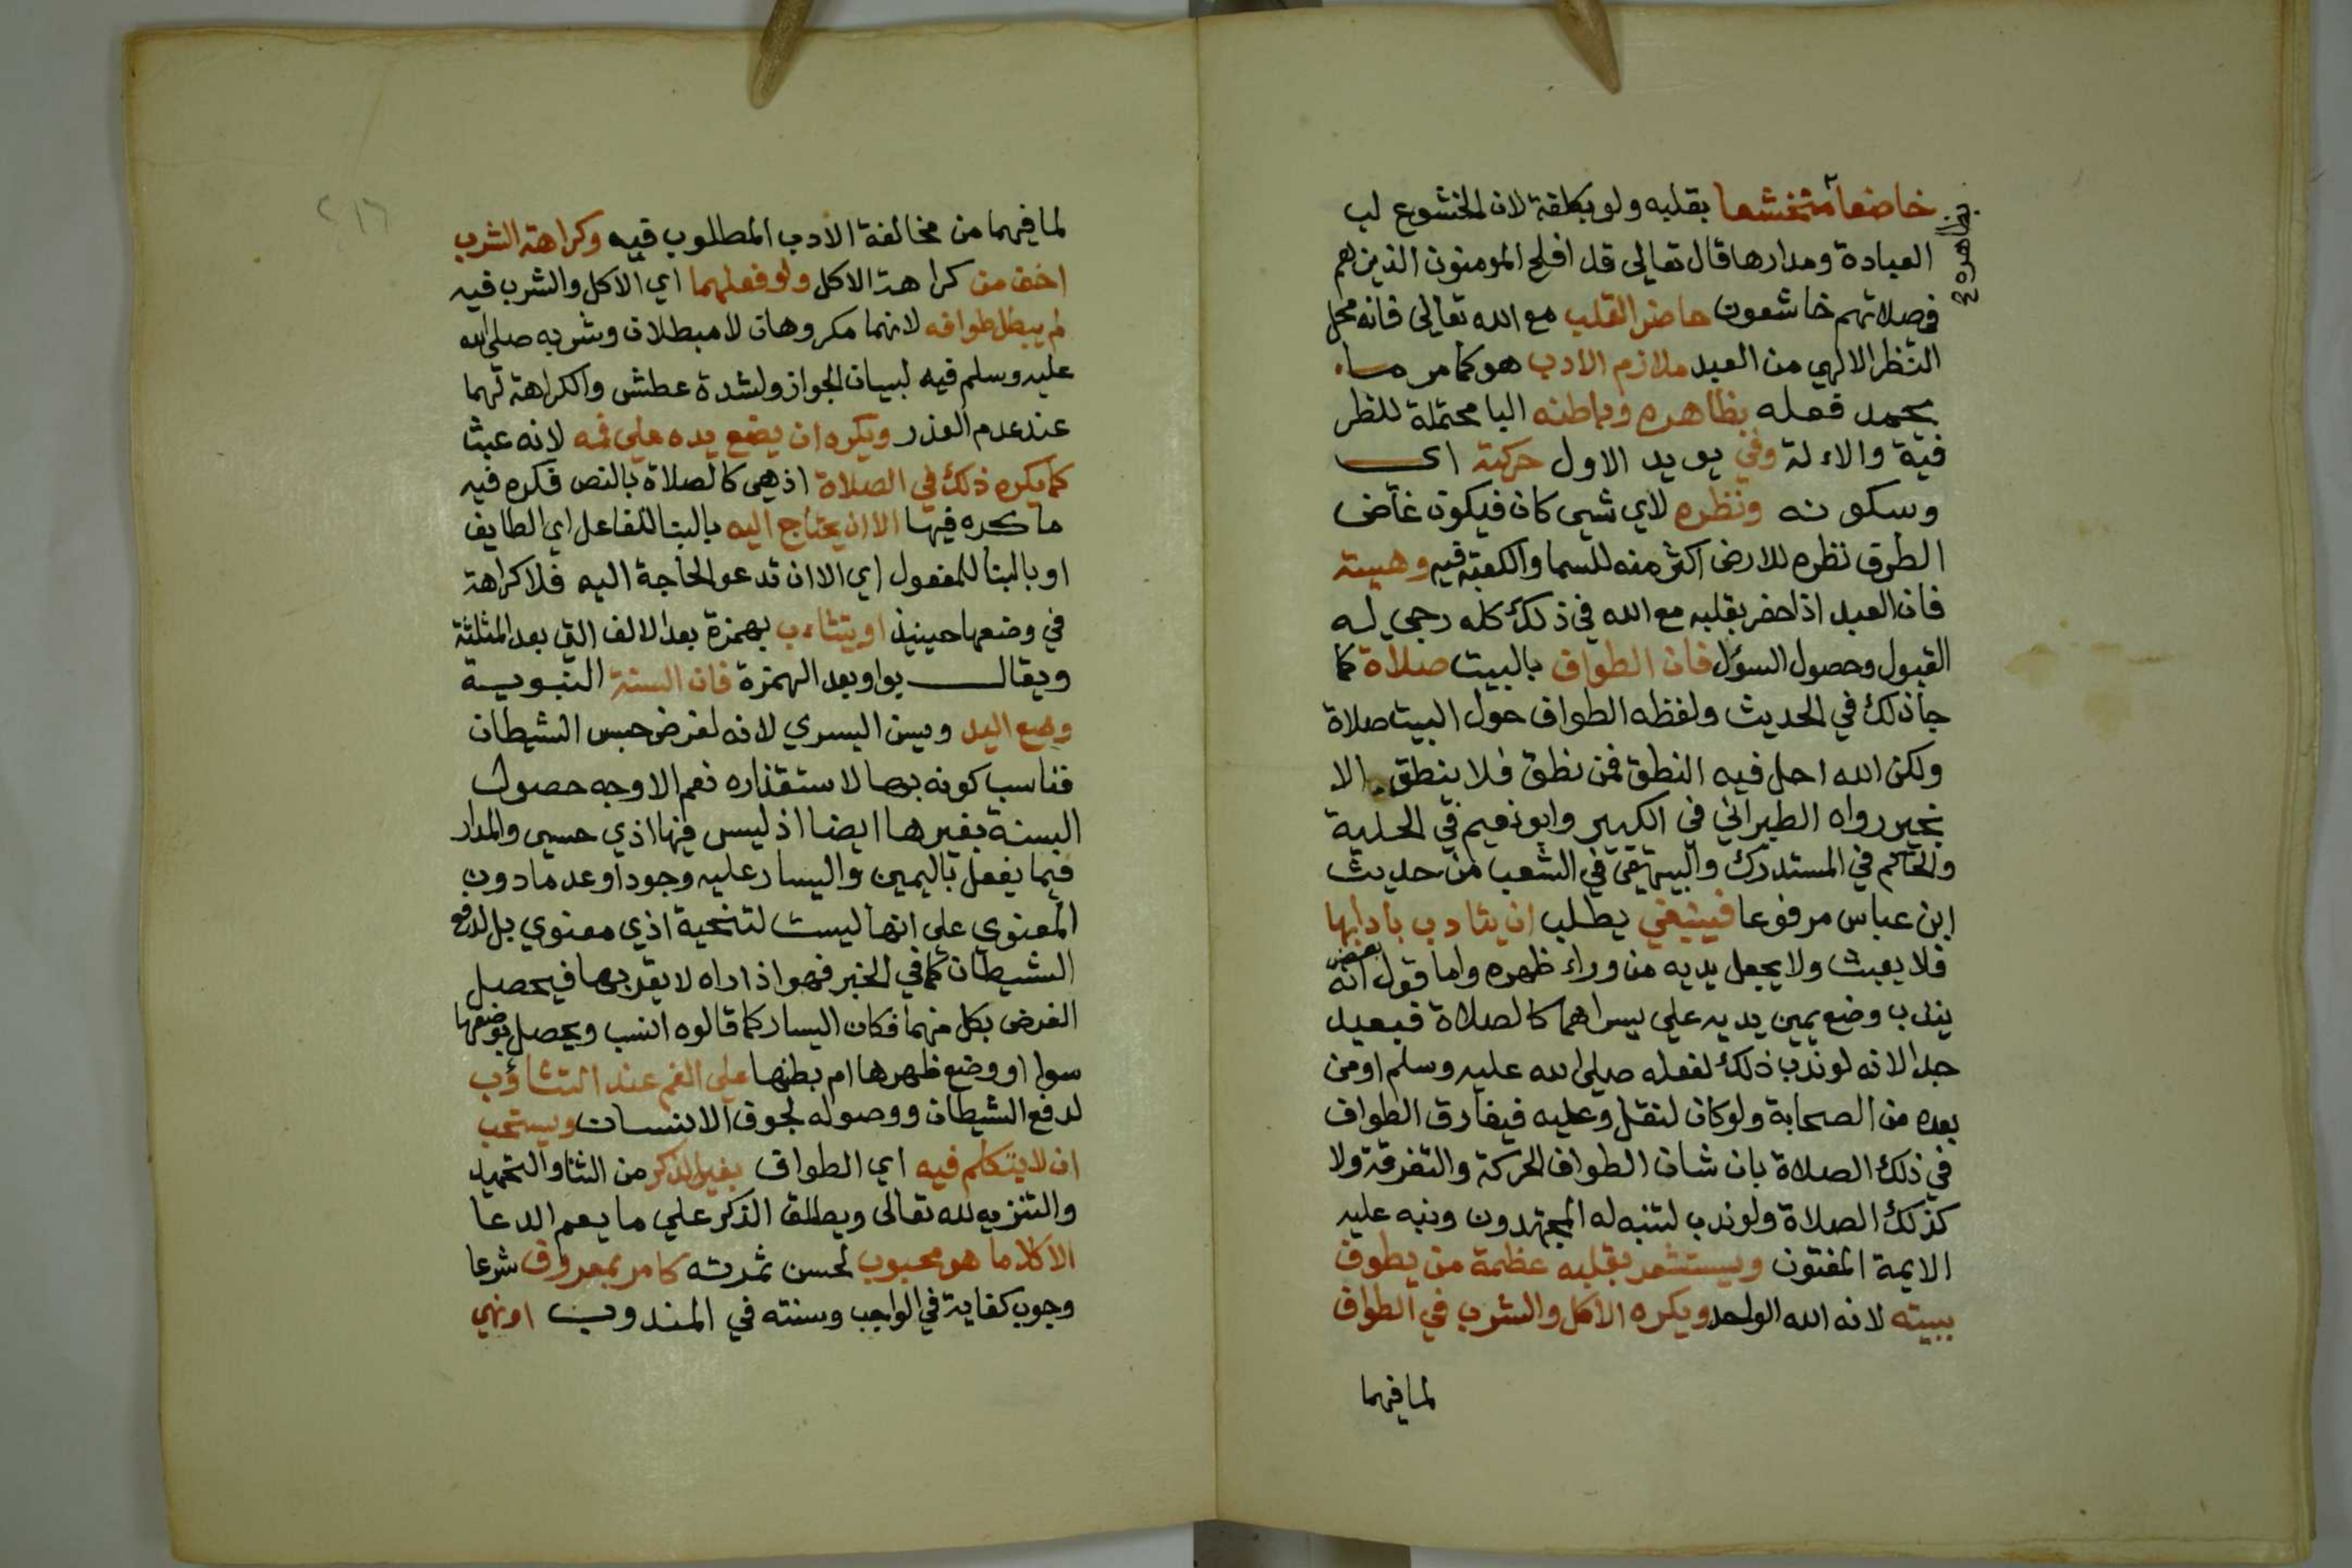 خاضعا متخشعا بقلبه ولو بكلفة لان الخشوع لب
بظاهره
العبادة ومدارها قال تعالى قد افلح المومنون الذين هم
في صلاتهم خاشعون حاضر القلب مع الله تعالى فانه محل
النظر الالهي من العبد ملازم الادب هو كما مر ما
يحمد فعله بظاهره وباطنه البا محتملة للنظر
فية والاءلة وفي يويد الاول حركته اي
وسكونه ونظره لاي شيى كان فيكون غاض
الطرف نظره للارض اكثر منه للسما والكعبة فيه وهيبته
فان العبد اذا حضر بقلبه مع الله في ذلك كله رجي له
القبول وحصول السؤل فان الطواف بالبيت صلاة كما
جا ذلك في الحديث ولفظه الطواف حول البيت صلاة
ولكن الله احل فيه النطق فمن نطق فلا ينطق الا
بخير رواه الطبراني في الكبير وابو نعيم في الحلية
والحاكم في المستدرك والبيهقى في الشعب من حديث
ابن عباس مرفوعا فينبغي يطلب ان يتادب بادابها
فلا يعبث ولا يجعل يديه من وراء ظهره واما قول بعض انه
يندب وضع يمين يديه على يسراهما كالصلاة فبعيد
جدا لانه لو ندب ذلك لفعله صلى الله عليه وسلم او من
بعده من الصحابة ولو كان لنقل وعليه فيفارق الطواف
في ذلك الصلاة بان شان الطواف الحركة والتفرقة ولا
كذلك الصلاة ولو ندب لتنبه له المجتهدون ونبه عليه
الايمة المفتون ويستشعر بقلبه عظمة من يطوف
ببيته لانه الله الواحد ويكره الاكل والشرب في الطواف
لما فيهما
٢١٦
لما فيهما من مخالفة الادب المطلوب فيه وكراهة الشرب
اخف من كراهة الاكل ولو فعلهما اي الاكل والشرب فيه
لم يبطل طوافه لانهما مكروهان لا مبطلان وشربه صلى الله
عليه وسلم فيه لبيان الجواز ولشدة عطش والكراهة لهما
عند عدم العذر ويكره ان يضع يده على فيه لانه عبث
كما يكره ذلك في الصلاة اذ هي كالصلاة بالنص فكره فيه
ما كره فيها الا ان يحتاج اليه بالبنا للفاعل اي الطايف
او بالبنا للمفعول اي الا ان تدعو الحاجة اليه فلا كراهة
في وضعها حينيذ او يتثاءب بهمزة بعد الالف التي بعد المثلثة
ويقال بواو بعد الهمزة فان السنة النبوية
وضع اليد ويسن اليسري لانه لغرض حبس الشيطان
فناسب كونه بها لاستقذاره نعم الاوجه حصول
السنة بغيرها ايضا اذ ليس فيها اذي حسي والمدار
فيما يفعل باليمين واليسار عليه وجودا وعدما دون
المعنوي علي انها ليست لتنحية اذي معنوي بل لدفع
الشيطان كما في الخبر فهو اذا راه لا يقربها فيحصل
الغرض بكل منهما فكان اليسار كما قالوه انسب ويحصل بوضعها
سوا او وضع ظهرها ام بطنها علي الفم عند التثاؤب
لدفع الشيطان ووصوله لجوف الانسان ويستحب
ان لا يتكلم فيه اي الطواف بغير الذكر من الثنا والتحميد
والتنزيه لله تعالى ويطلق الذكر علي ما يعم الدعا
الا كلاما هو محبوب لحسن ثمرته كامر بمعروف شرعا
وجوب كفاية في الواجب وسنته في المندوب او نهي